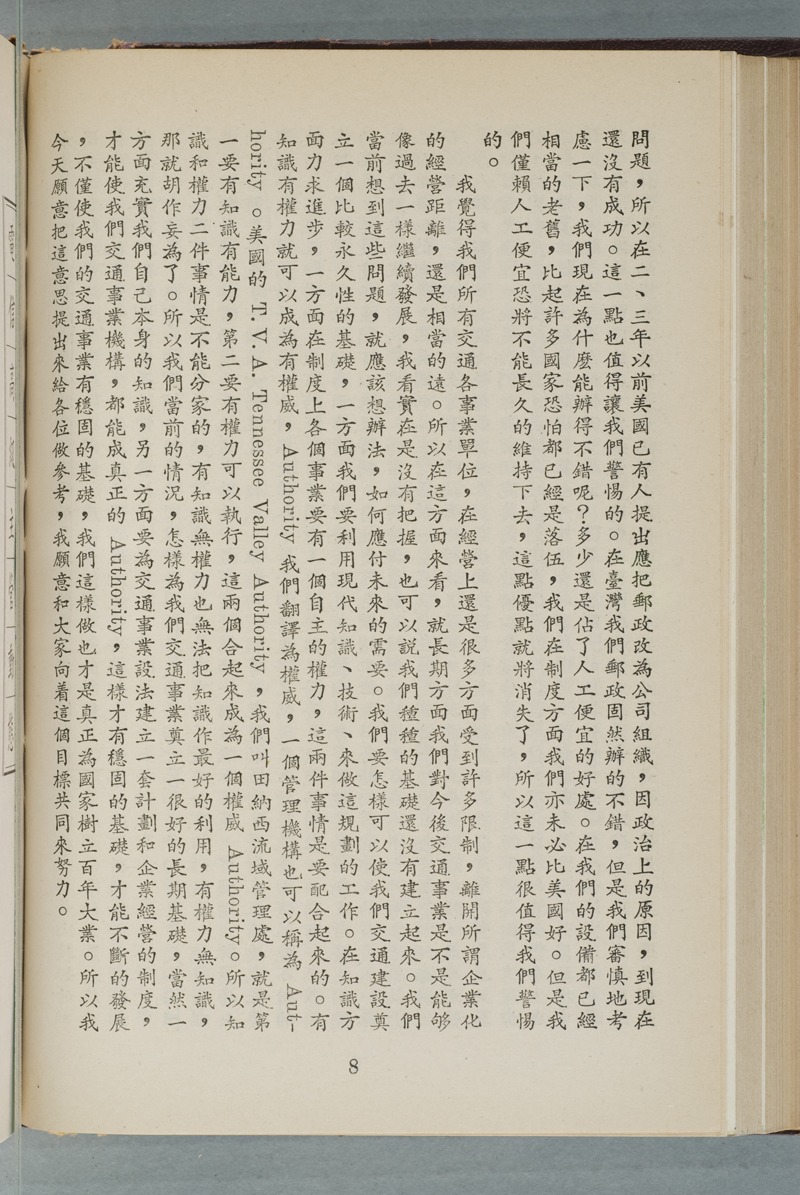 問題，所以在二、三年以前美國已有人提出應把郵政改為公司組織，因政治上的原因，到現在
還沒有成功。這一點也值得讓我們警惕的。在臺灣我們郵政固然辦的不錯，但是我們審慎地考
慮一下，我們現在為什麽能辦得不錯呢？多少還是佔了人工便宜的好處。在我們的設備都已經
相當的老舊，比起許多國家恐怕都已經是落伍，我們在制度方面我們亦未必比美國好。但是我
們僅賴人工便宜恐將不能長久的維持下去，這點優點就將消失了，所以這一點很值得我們警惕
的。
我覺得我們所有交通各事業單位，在經營上還是很多方面受到許多限制，離開所謂企業化
的經營距離，還是相當的遠。所以在這方面來看，就長期方面我們對今後交通事業是不是能够
像過去一樣繼續發展，我看實在是沒有把握，也可以說我們種種的基礎還沒有建立起來。我們
當前想到這些問題，就應該想辦法，如何應付未來的需要。我們要怎樣可以使我們交通建設奠
立一個比較永久性的基礎，一方面我們要利用現代知識、技術、來做這規劃的工作。在知識方
面力求進步，一方面在制度上各個事業要有一個自主的權力，這兩件事情是要配合起來的。有
知識有權力就可以成為有權威，Authority 我們翻譯為權威，一個管理機構也可以稱為 Aut-
hority 。美國的 T. V. A. Tennessee Valley Authority，我們叫田納西流域管理處，就是第
一要有知識有能力，第二要有權力可以執行，這兩個合起來成為一個權威 Authority。所以知
識和權力二件事情是不能分家的，有知識無權力也無法把知識作最好的利用，有權力無知識，
那就胡作妄為了。所以我們當前的情況，怎樣為我們交通事業奠立一很好的長期基礎，當然一
方面充實我們自己本身的知識，另一方面要為交通事業設法建立一套計劃和企業經營的制度，
才能使我們交通事業機構，都能成真正的 Authority，這樣才有穩固的基礎，才能不斷的發展
，不僅使我們的交通事業有穩固的基礎，我們這樣做也才是真正為國家樹立百年大業。所以我
今天願意把這意思提出來給各位做參考，我願意和大家向着這個目標共同來努力。
8